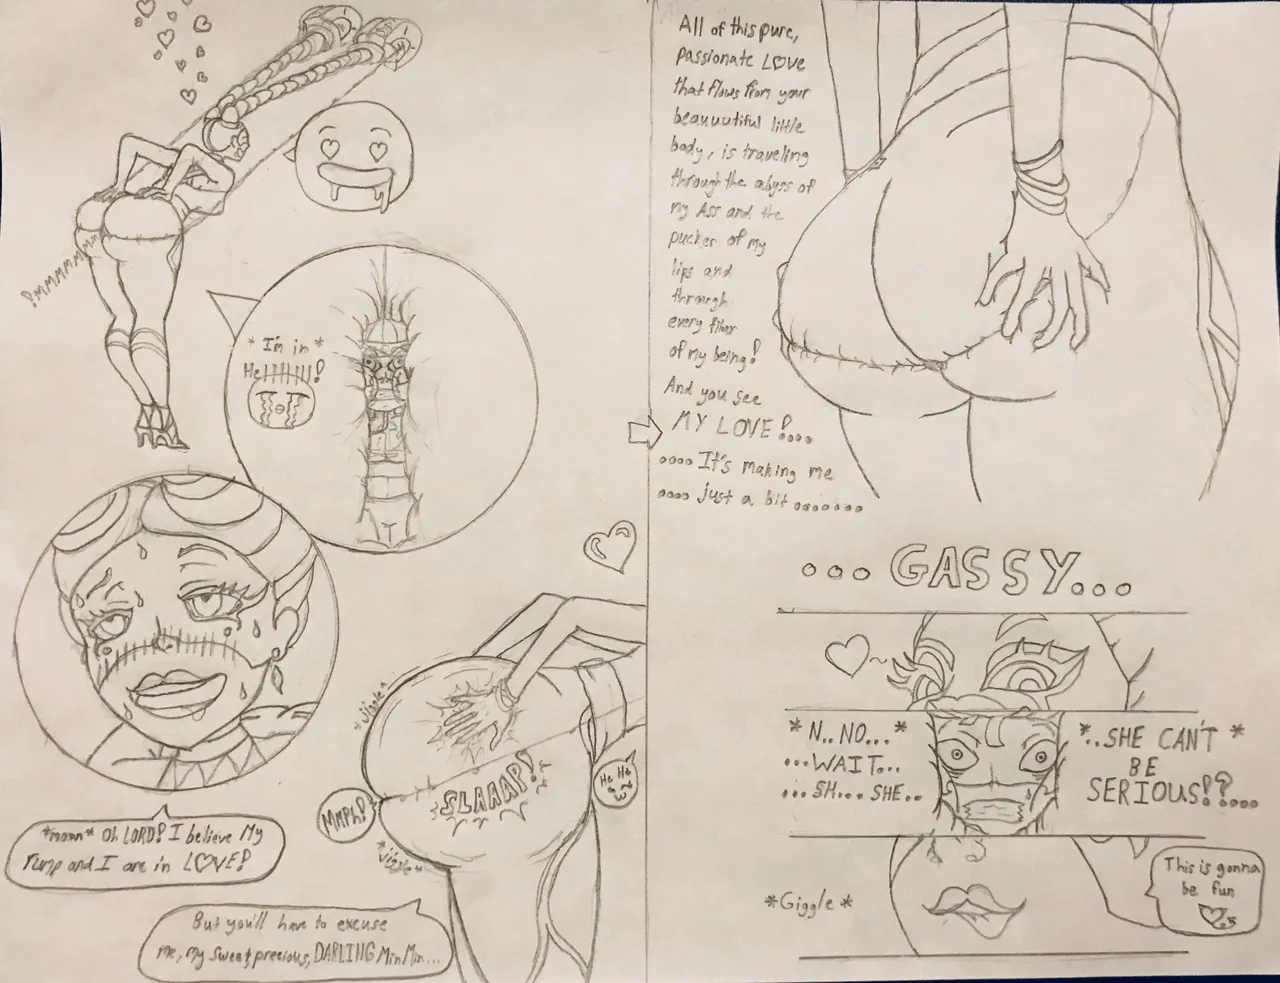 !MMMMMMM
*I'm in*
He||||||||!
*moan* Oh LORD! I believe My
rump and I are in LOVE!
*Jiggle*
SLAAAP!
MMPh!
*Jiggle*
He He
But you'll have to excuse
me, my sweet, precious, DARLING MinMin...
All of this pure,
passionate LOVE
that flows from your
beauuutiful little
body, is traveling
through the abyss of
my Ass and the
pucker of my
lips and
through
every fiber
of my being!
And you see
MY LOVE!....
....It's making me
.... just a bit .......
...GASSY...
*N..NO...*
...WAIT...
...SH...SHE..
*..SHE CAN'T*
BE
SERIOUS!?....
*Giggle*
This is gonna
be fun